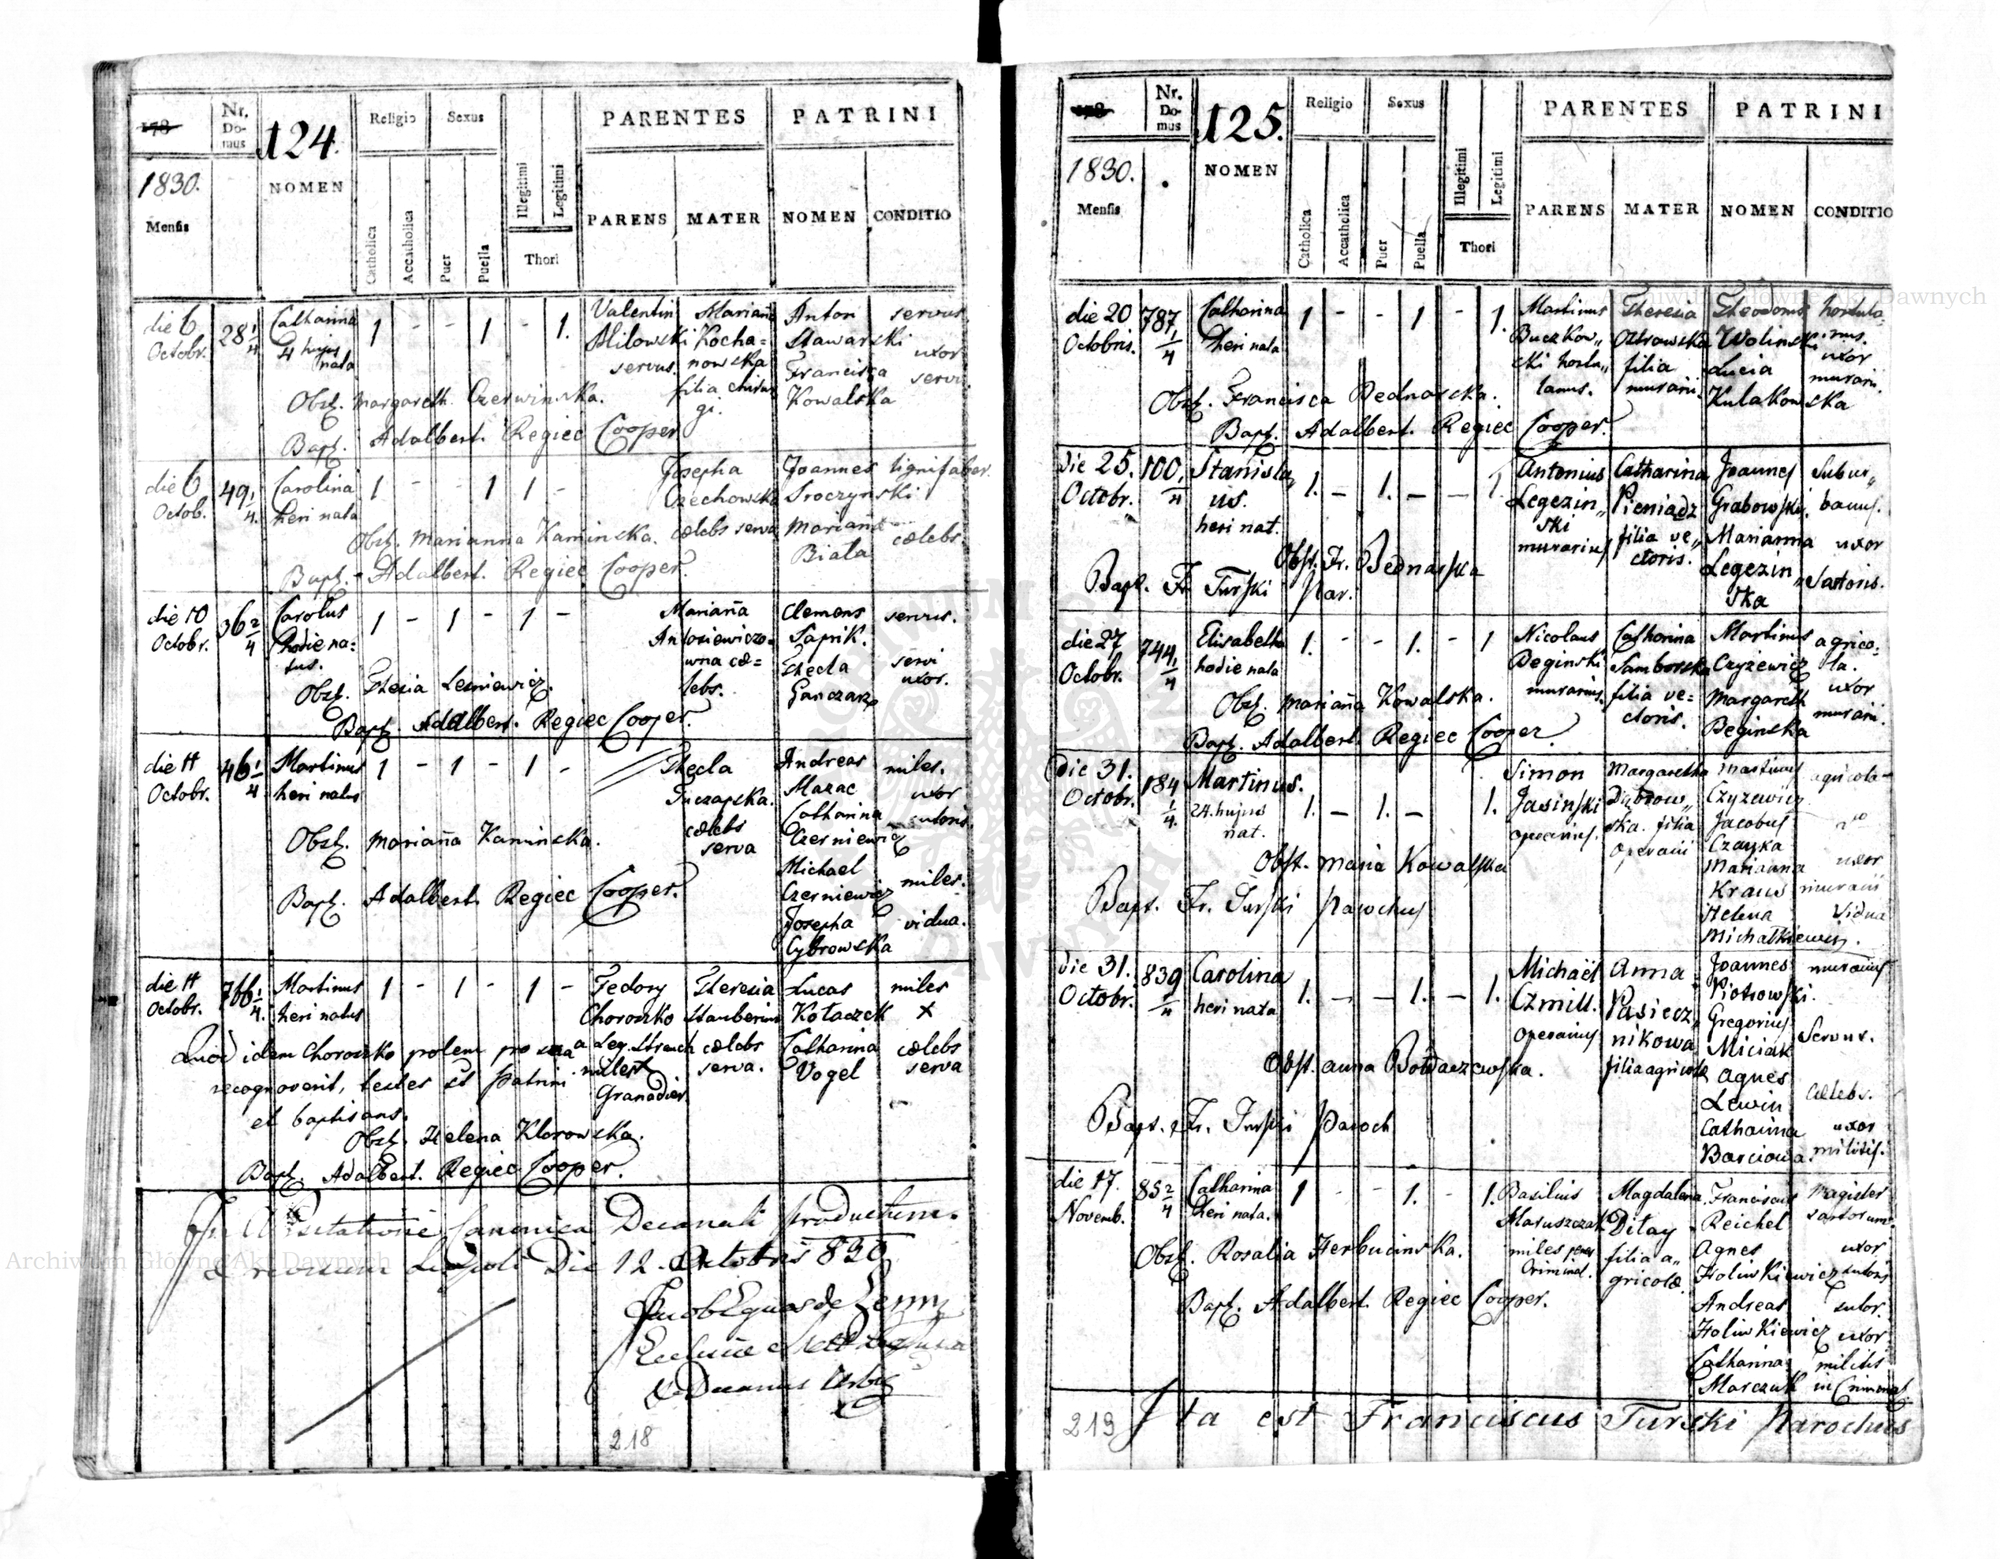 178
Nr. Do- mus
124.
Religio
Sexus
PARENTES
PATRINI
1830.
NOMEN
Illegitimi
Legitimi
Mensis
Catholica
Accatholica
Puer
Puella
Thori
PARENS
MATER
NOMEN
CONDITIO
die 6 Octobr.
28 1/4
Catharina 4 hujus nata
1 - - 1 - 1.
Valentin Milowski servus.
Marianna Kocha= nowska filia chirur gi.
Anton Stawarski
Francisca Kowalska
servus
uxor servi
Obst. Margareth. Czerwinska.
Bapt. Adalbert. Regiec Cooper.
die 6 Octob.
49 1/4.
Carolina heri nata
1 - - 1 1 -
Josepha Czechowska cœlebs serva
Joannes Sroczynski
Mariana Biała
lignifaber.
cœlebs.
Obst. Marianna Kaminska.
Bapt. Adalbert. Regiec Cooper.
die 10 Octobr.
36 2/4
Carolus hodie na= tus.
1 - 1 - 1 -
Mariana Antosiewiczo= wna cœ= lebs.
Clemens Saprik.
Thecla Ganczarz
servus.
servi uxor.
Obst. Thecla Lesniewicz.
Bapt. Adalbert. Regiec Cooper.
die 11 Octobr.
46 1/4
Martinus heri natus
1 - 1 - 1 -
Thecla
cœlebs serva
Andreas Mazac
Catharina Czerniewicz
Michael Czerniewicz
Josepha Cybrowska
miles.
uxor sutoris
miles.
vidua.
Obst. Mariana Kaminska.
Bapt. Adalbert. Regiec Cooper.
die 11 Octobr.
766 1/4.
Martinus heri natus
1 - 1 - 1 -
Fedory Choroszko Leg. Strauch milest Granadier
Theresia Stauberin cœlebs serva.
Lucas Kołaczek
Catharina Vogel
miles
X
cœlebs serva
Quod idem Choroszko prolem pro sua
recognoverit, testes st patrini
et baptisans.
Obst. Helena Klorowska.
Bapt. Adalbert. Regiec Cooper.
Visitatione Canonica Decanali productum.
Leopoli Die 12. Octobris 830
Jacob Eques de
Decanus Urbis
218
178
Nr. Do- mus
125.
Religio
Sexus
PARENTES
PATRINI
1830.
NOMEN
Illegitimi
Legitimi
Mensis
Catholica
Accatholica
Puer
Puella
Thori
PARENS
MATER
NOMEN
CONDITIO
die 20 Octobris.
787 1/4
Catharina heri nata
1 - - 1 - 1.
Martinus Buczkow„ ski hortu„ lanus.
Theresia Ostrowska filia murarii.
Theodorus Wolinski
Lucia Kulakowska
hortula= nus.
uxor murarii.
Obst. Francisca Bednarska.
Bapt. Adalbert. Regiec Cooper.
die 25. Octobr.
100 1/4
Stanisla„ us. heri nat.
1. - 1. - - 1.
Antonius Legezin„ ski murarius
Catharina Pieniadz filia ve„ ctoris.
Joannes Grabowski.
Marianna Legezin„ ska
subur„ banus.
uxor Sartoris.
Obst. Fr. Bednarska
Bapt. Fr. Turski Par.
die 27 Octobr.
744 1/4
Elisabetha hodie nata
1. - - 1. - 1
Nicolaus Beginski murarius.
Catharina Samborska filia ve= ctoris.
Martinus Czyżewicz
Margareth Beginska
agrico= la.
uxor murarii.
Obst. Mariana Kowalska.
Bapt. Adalbert. Regiec Cooper.
die 31. Octobr.
184 1/4.
Martinus. 24. hujus nat.
1. - 1. - 1.
Simon Jasinski operarius.
Margaretha Dąbrow„ ska. filia operarii
Martinus Czyzewicz
Jacobus Czayka
Marianna Kraus
Helena Michalkiewicz.
agricola
uxor murarii
Vidua
Obst. Maria Kowalska
Bapt. Fr. Turski Parochus
die 31. Octobr.
839 1/4
Carolina heri nata
1. - - 1. - 1.
Michaël Czmill. operarius
Anna Pasiecz„ nikowa filia agricolæ
Joannes Piotrowski.
Gregorius Miciak
Agnes Lewin
Catharina Barciowa.
murarius
Servus.
Cælebs.
uxor militis.
Obst. Anna Bołdaczewska.
Bapt. Fr. Turski Paroch
die 17. Novemb.
852/4
Catharina heri nata.
1 - - 1. - 1.
Basilius Maruszczak miles Criminal.
Magdalena Ditay filia a„ gricolæ.
Franciscus Reichel
Agnes Holinkiewicz
Andreas Holinkiewicz
Catharina Marczuk
Magister sartorum
uxor sutoris
sutor.
uxor militis in Criminal.
Obst. Rosalia Herbucinska.
Bapt. Adalbert. Regiec Cooper.
219
Ita est Franciscus Turski Parochus
Archiwum Główne Akt Dawnych
Archiwum Główne Akt Dawnych